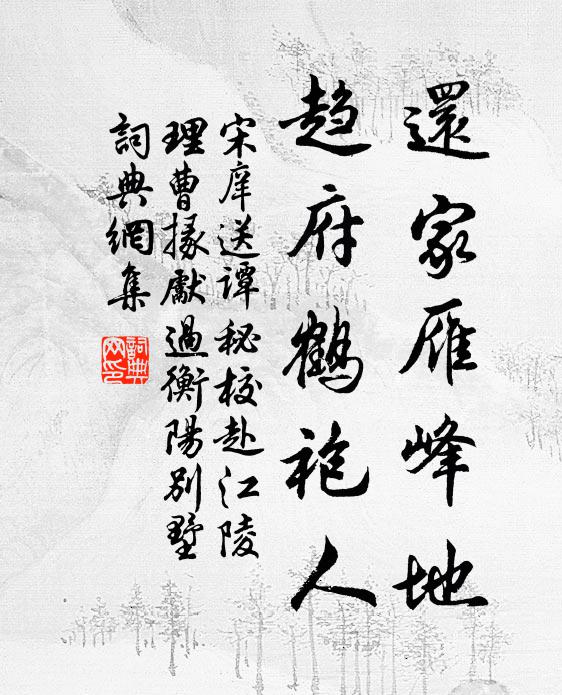 還家雁峰地
趙府鶴袍人
宋庠送譚秘校赴江陵
理曹掾獻過衡陽別墅
詞典網集
詞典網印